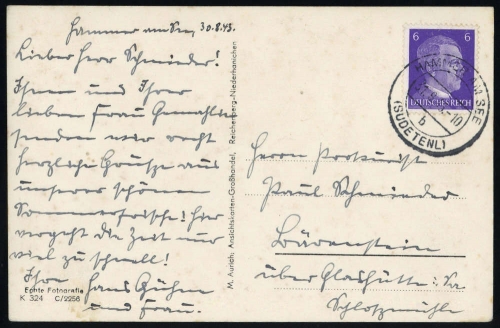 Hammer am See, 30.8.43.
Lieber Herr Schmieder!
Ihnen und Ihrer
lieben Frau Gemahlin
senden wir recht
herzliche Grüsse aus
unserer schönen
Sommerfrische! Hier
vergeht die Zeit nur
viel zu schnell!
Ihre Hans Kühn
und Frau.
Echte Fotografie
K 324 C/2256
M. Aurich, Ansichtskarten-Großhandel, Reichenberg-Niederhanichen
6 6
DEUTSCHES REICH
HAMMER AM SEE
(SUDETENL)
b
Herrn Prokurist
Paul Schmieder
Bärenstein
über Glashütte i. Sa.
Schlossmühle